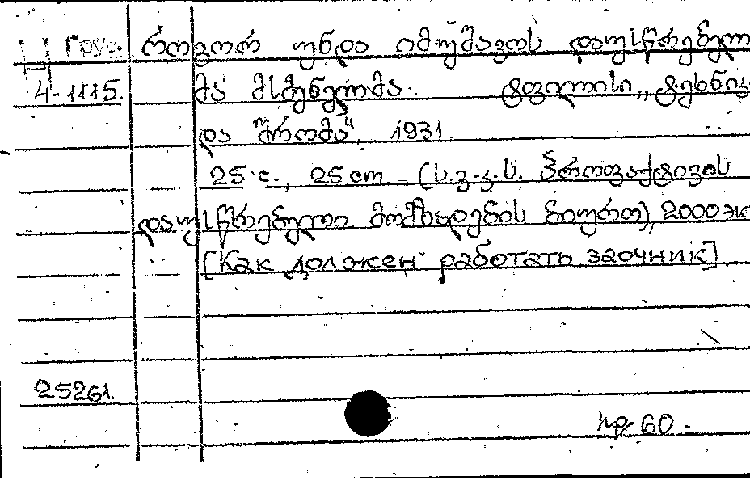 Груз. როგორ უნდა იმუშაოს დაუსწრებელ
4-1115. მა მსმენელმა. ტფილისი, „ტექნიკ
და შრომა", 1931.
25 с., 25 cm – (ს.ვ.კ.ს. პროფაქტივის
დაუსწრებელი მომზადების ბიურო), 2000 эк
[Как должен работать заочник]
25261.
60.